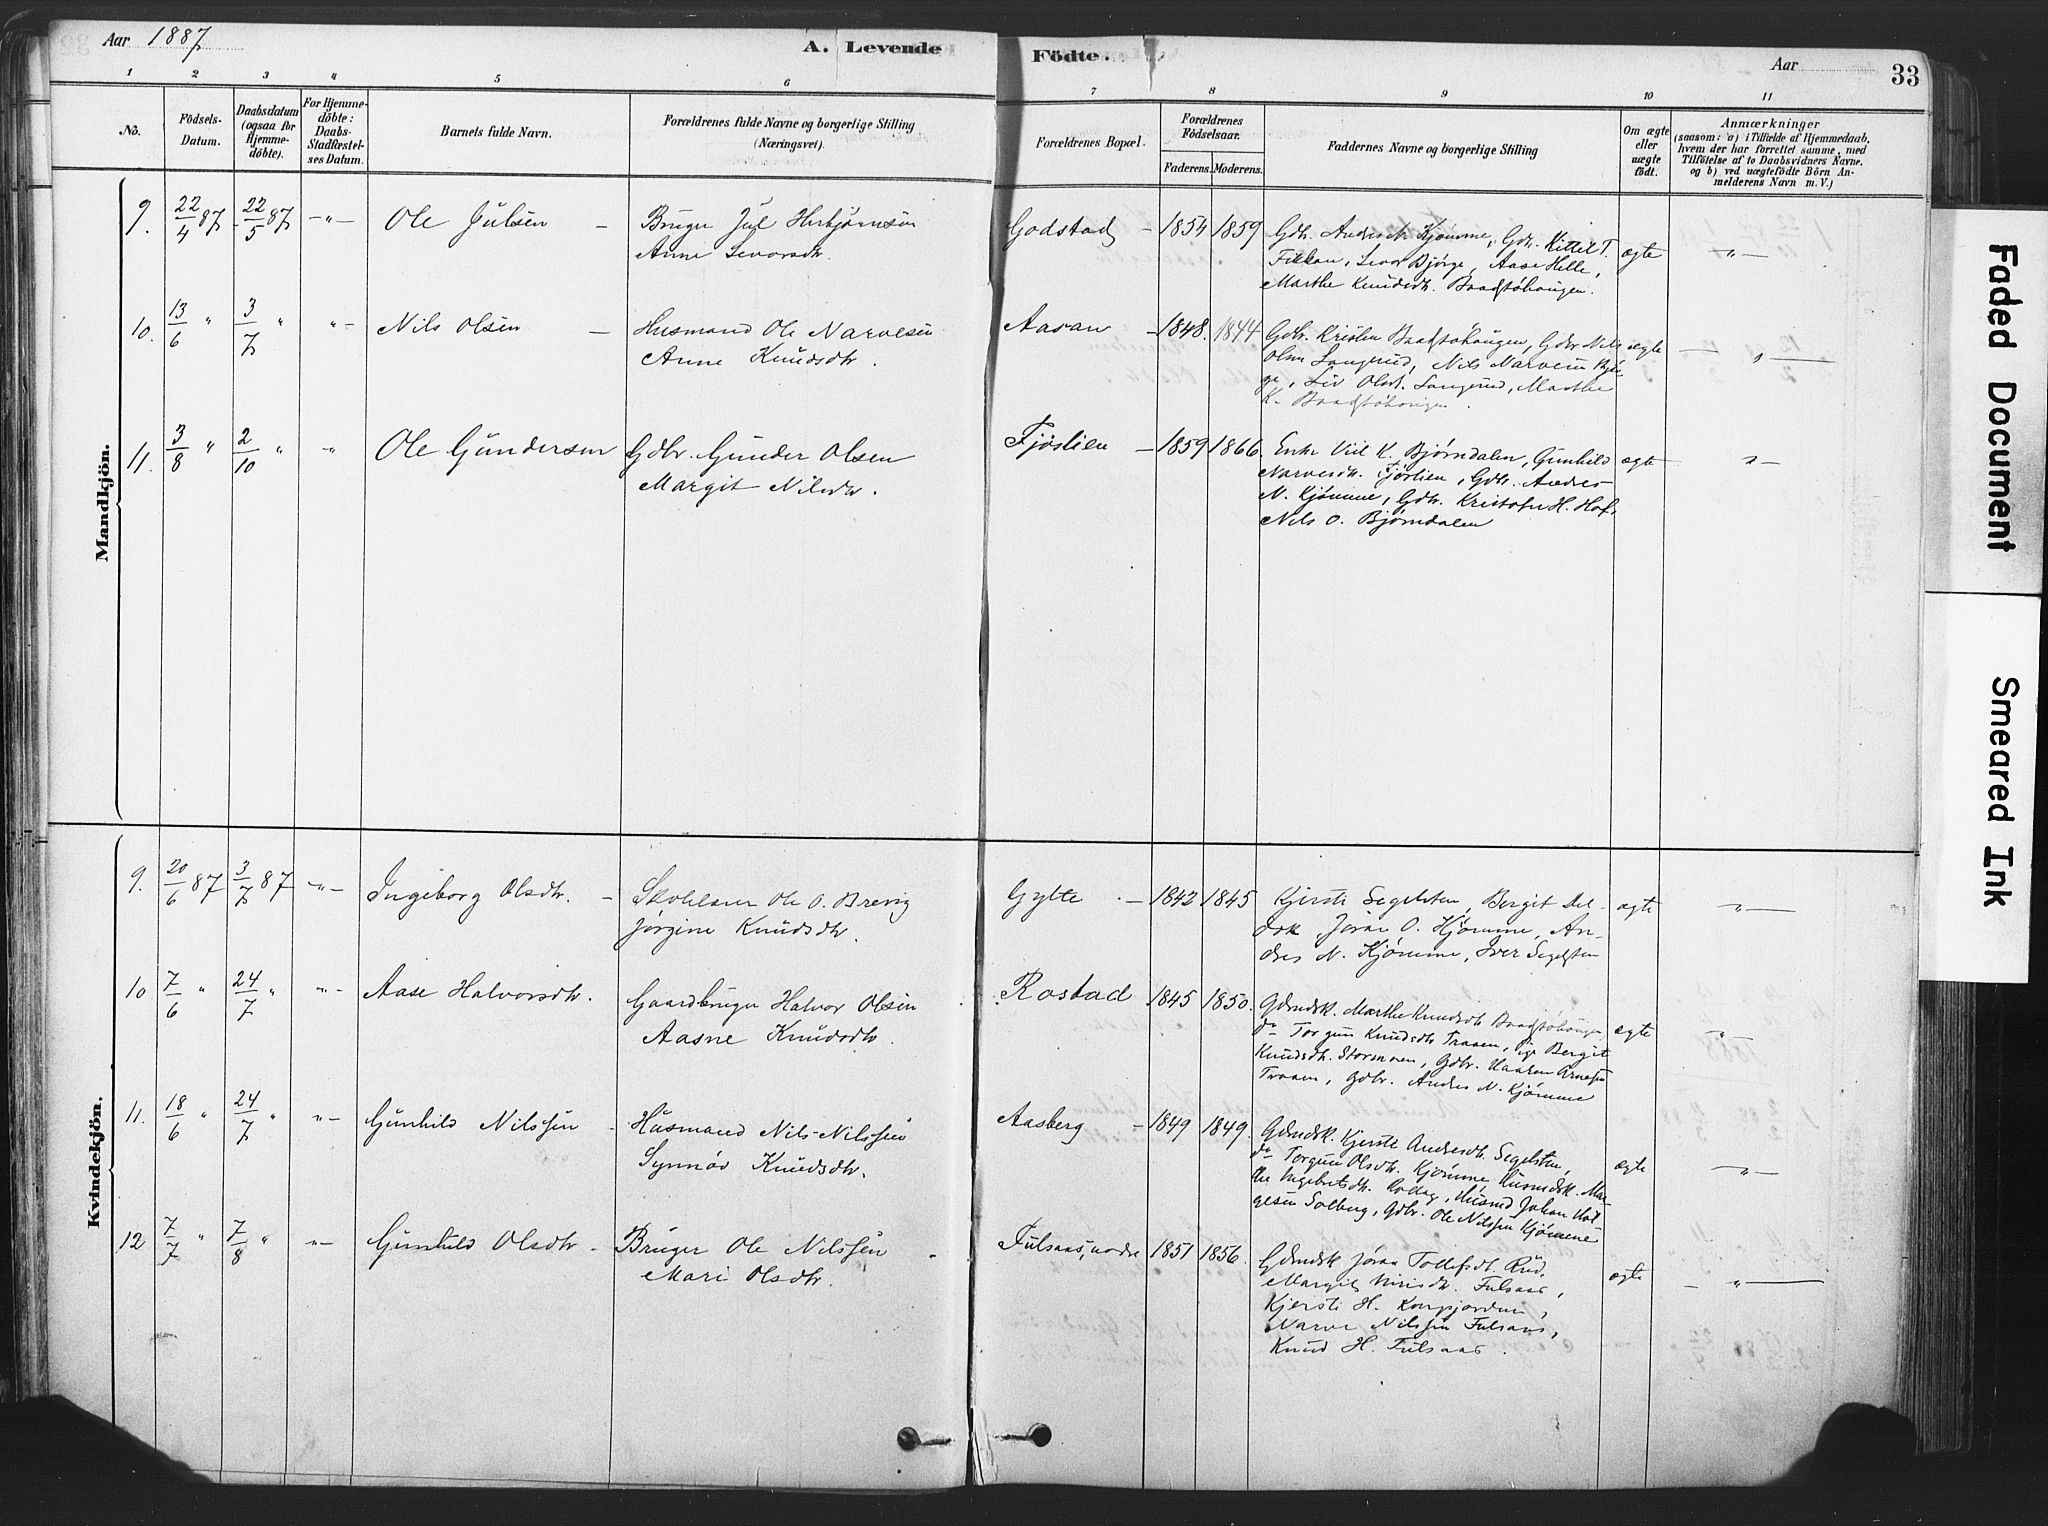 Aar 1887
A. Levende Födte.
Aar
33
1 2 3 4 5 6 7 8 9 10 11
No.
Födsels-
Datum.
Daabsdatum
(ogsaa for
Hjemme-
döbte).
For Hjemme-
döbte:
Daabs-
Stadfæstel-
ses Datum.
Barnets fulde Navn.
Forældrenes fulde Navne og borgerlige Stilling
(Næringsvei).
Forældrenes Bopæl.
Forældrenes
Födselsaar.
Faderens. Moderens.
Faddernes Navne og borgerlige Stilling
Om ægte
eller
uægte
födt.
Anmærkninger
(saasom: a) i Tilfælde af Hjemmedaab,
hvem der har forrettet samme, med
Tilföielse af to Daabsvidners Navne.
og b) ved uægtefödte Börn An-
melderens Navn m. V.)
Mandkjön.
9. 22/4 87 22/5 87 -"- Ole Julsen - Bruger Jul Herbjørnsen
Anne Seversdtr.
Godstad - 1854 1859 Gdbr. Andres N. Kjømme, Gdbr. Kittil T.
Fikkan, Sevor Bjørge, Aase Helle,
Marthe Knudsdtr. Baadstøhaugen.
ægte "-
10. 13/6 " 3/7 " "- Nils Olsen - Husmand Ole Narvesen
Anne Knudsdtr.
Aasan - 1848. 1844 Gdbr. Kristen Baadstøhaugen, Gdbr Nils
Olsn Langerud, Nils Narvesen Bjø-
ge, Liv Olsdt. Langerud, Marthe
K. Baadstøhaugen.
ægte - " -
11. 3/8 " 2/10 " "- Ole Gundersen Gdbr. Gunder Olsen
Margit Nilsdtr.
Fjøslien - 1859 1866. Enke Viil K. Bjørndalen, Gunhild
Narvesdtr. Fjøslien, Gdbr. Andres
N. Kjømme, Gdbr. Kristofer H. Hof,
Nils O. Bjørndalen
ægte "-
Kvindekjön.
9. 20/6 87 3/7 87 -"- Ingeborg Olsdtr. - Skolelærer Ole O. Brevig
Jørgine Knudsdtr.
Gylte - 1842 1845 Kjersti Segelsten, Bergit Del-
dok Jøran O. Kjømme, An-
dres N. Kjømme, Iver Segelsten
ægte -"-
10 7/6 " 24/7 " -"- Aase Halvorsdtr. Gaardbruger Halvor Olsen
Aasne Knudsdtr.
Rostad 1845 1850. Gdmdsk. Marthe Knudsdtr Baadstøhaugen
do Torgun Knudsdtr Traaen, pige Bergit
Knudsdtr. Stormoen, Gdbr. Haaren Arnesen
Traaen, Gdbr. Andres N. Kjømme
ægte -"-
11. 18/6 " 24/7 " "- Gunhild Nilssen - Husmand Nils Nilssen
Synnøv Knudsdtr.
Aasberg - 1849 1849. Gdmdsk. Kjersti Andresdtr. Segelsten,
do Torgun Olsdtr. Kjømme, Husmdsk. Mar-
the Ingebretsdtr. Rollag, Husmd Johan Hel-
gesen Solberg, Gdbr. Ole Nilssen Kjømme
ægte -"-
12 7/7 " 7/8 " -"- Gunhild Olsdtr - Bruger Ole Nilssen -
Mari Olsdtr.
Fulsaas, nodre 1851 1856. Gdmdsk Jøran Tollefsdt. Rud,
Margit Nirisdtr. Fulsaas,
Kjersti H. Kongsjorden,
Narve Nilssen Fulsaas,
Knud H. Fulsaas.
ægte - " -
Faded Document
Smeared Ink